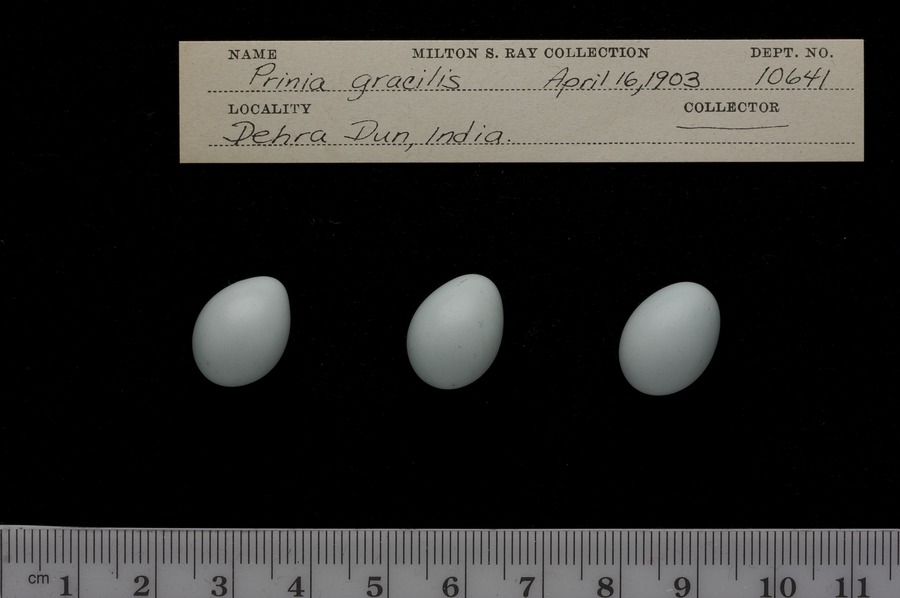 NAME MILTON S. RAY COLLECTION DEPT. NO.
Prinia gracilis April 16, 1903 10641
LOCALITY COLLECTOR
Dehra Dun, India.
cm 1 2 3 4 5 6 7 8 9 10 11